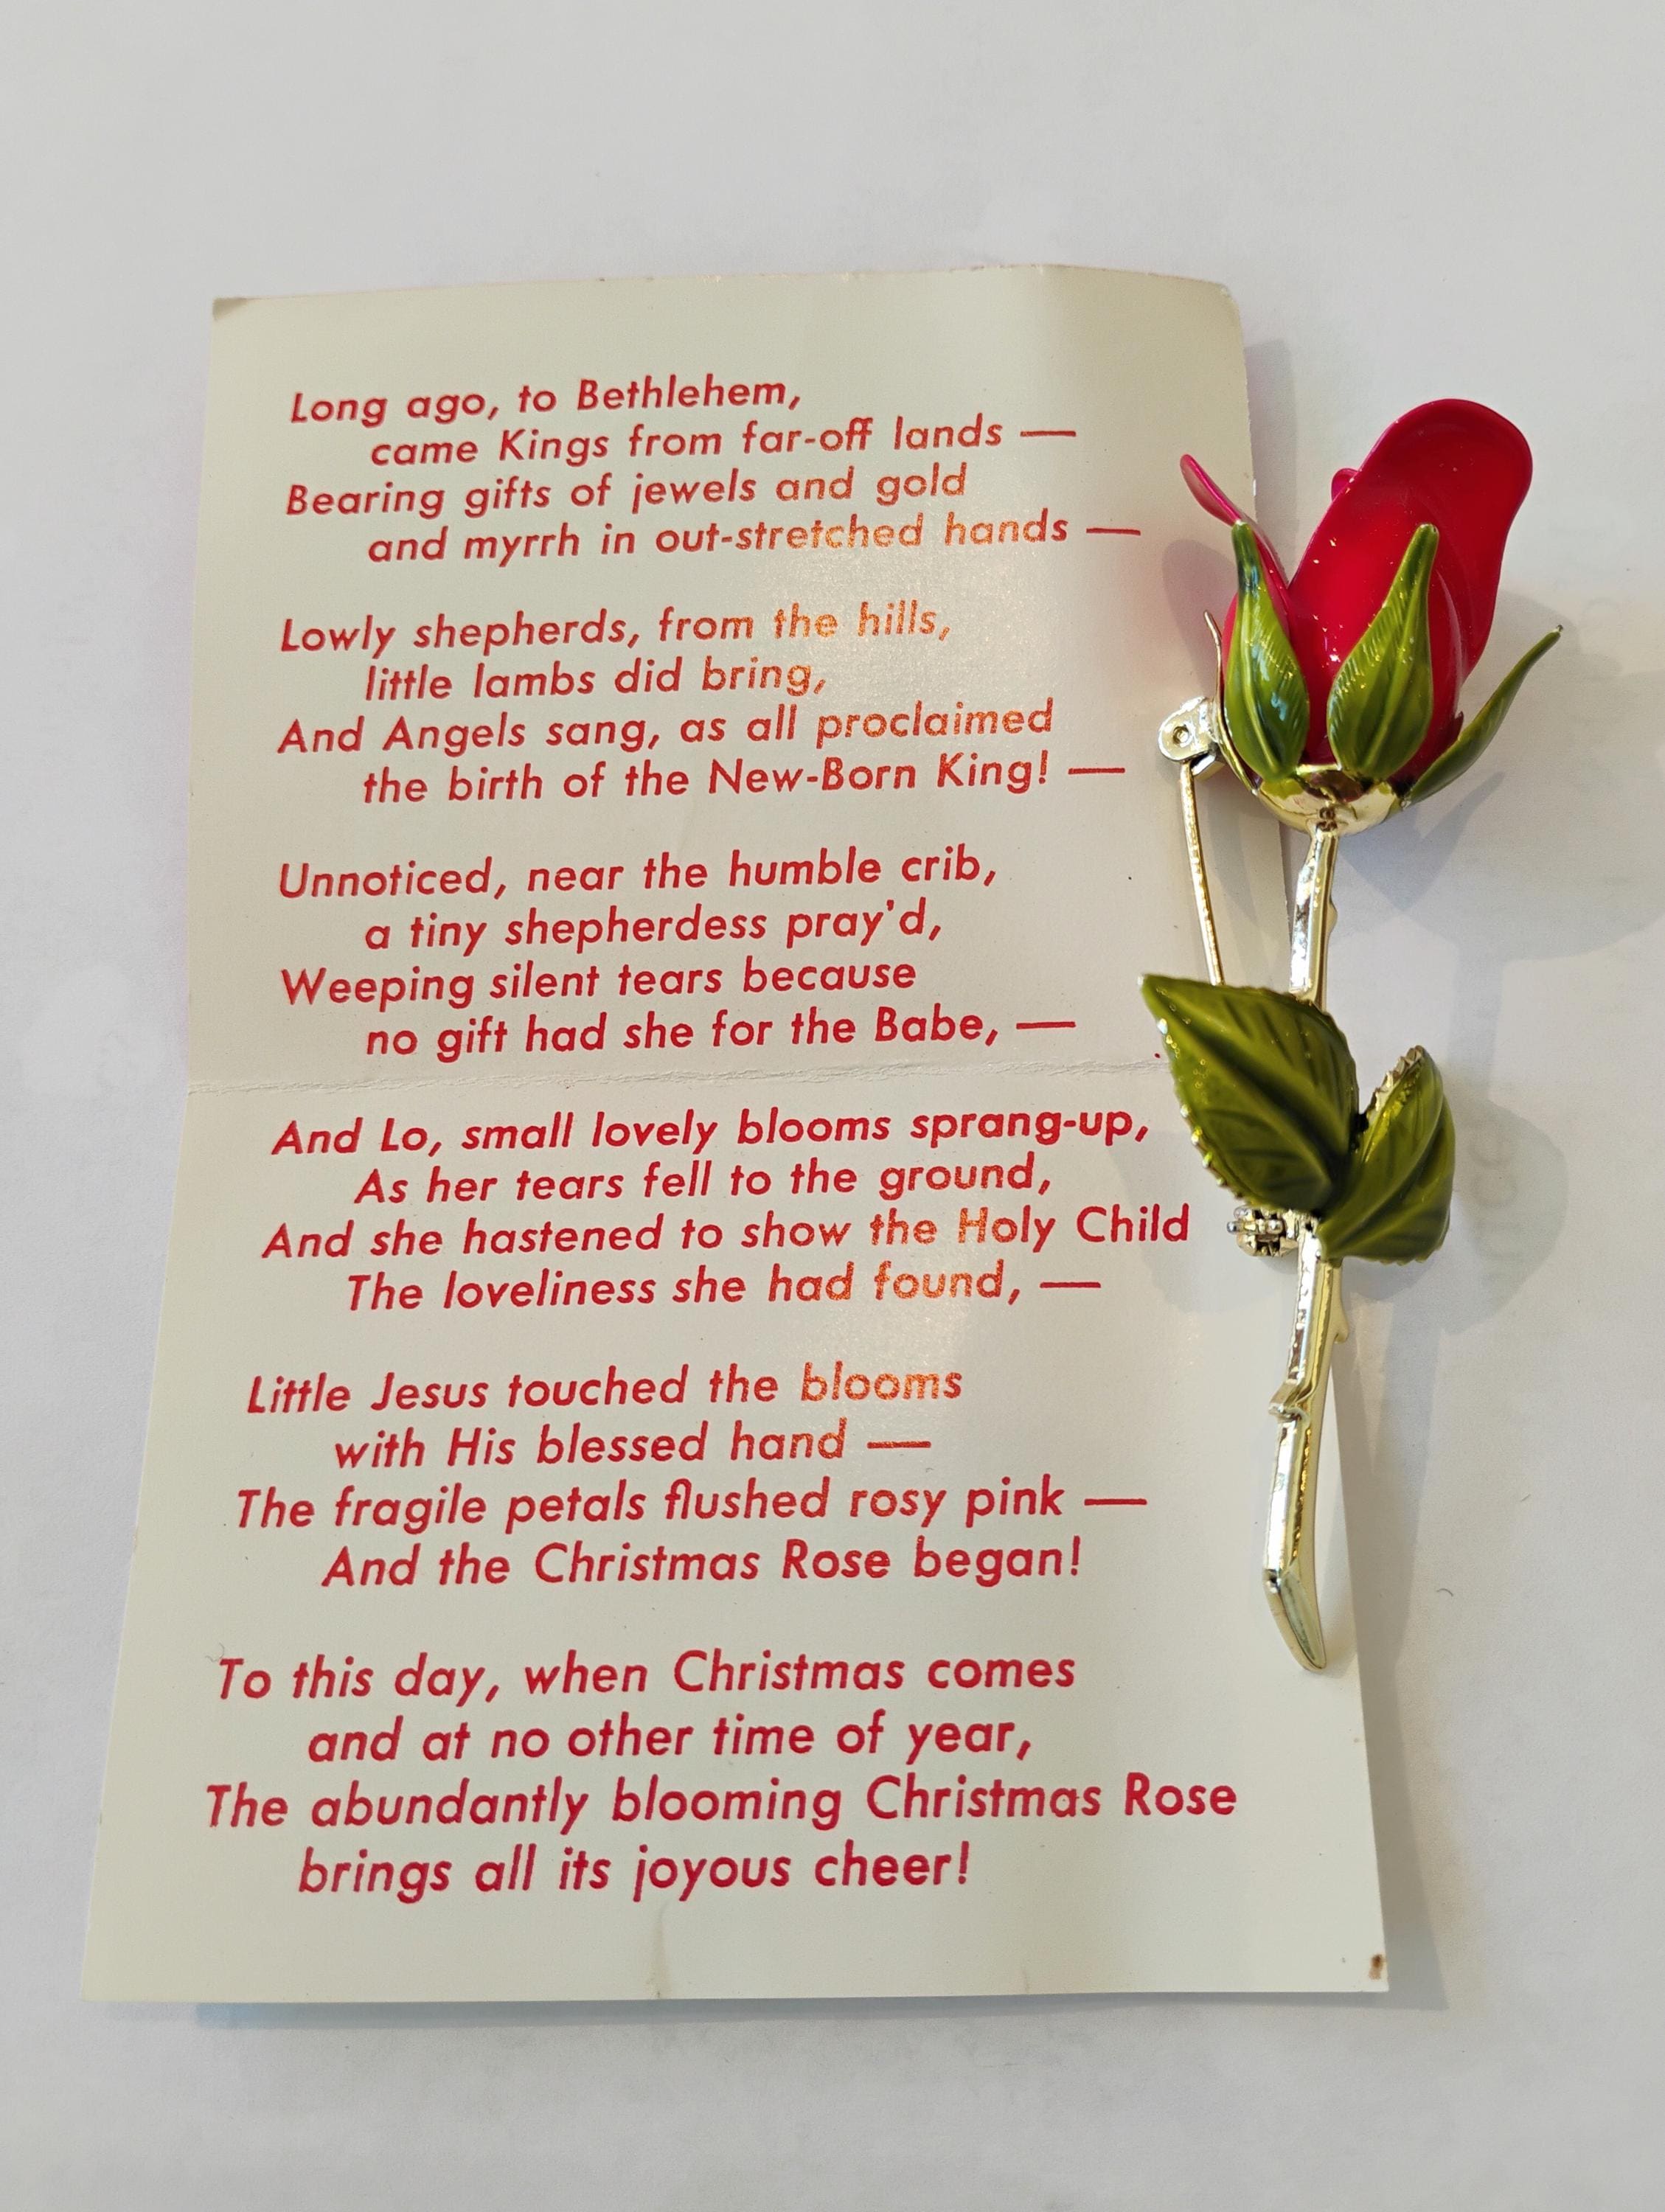 Long ago, to Bethlehem,
came Kings from far-off lands —
Bearing gifts of jewels and gold
and myrrh in out-stretched hands —
Lowly shepherds, from the hills,
little lambs did bring,
And Angels sang, as all proclaimed
the birth of the New-Born King! —
Unnoticed, near the humble crib,
a tiny shepherdess pray'd,
Weeping silent tears because
no gift had she for the Babe, —
And Lo, small lovely blooms sprang-up,
As her tears fell to the ground,
And she hastened to show the Holy Child
The loveliness she had found, —
Little Jesus touched the blooms
with His blessed hand —
The fragile petals flushed rosy pink —
And the Christmas Rose began!
To this day, when Christmas comes
and at no other time of year,
The abundantly blooming Christmas Rose
brings all its joyous cheer!